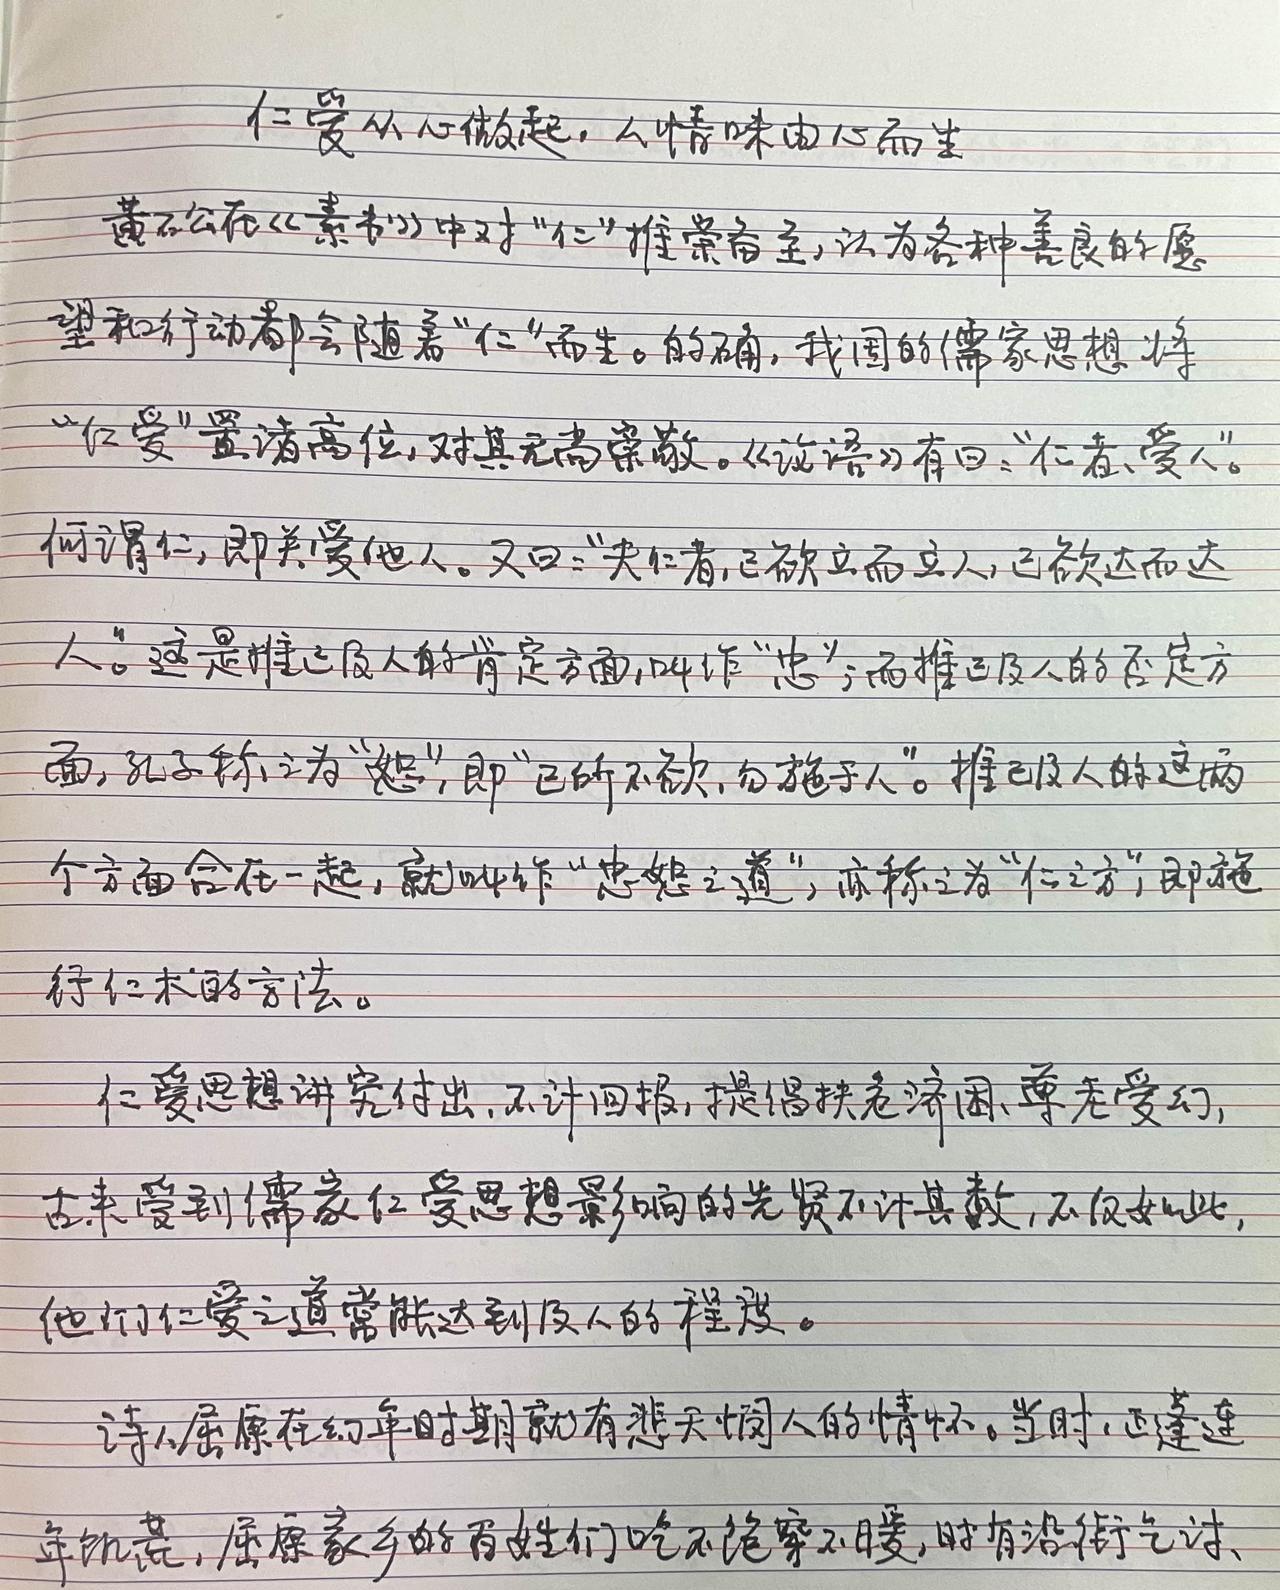 仁爱从心做起，人情味由心而生
黄石公在《素书》中对“仁”推崇备至，认为各种善良的愿
望和行动都会随着“仁”而生。的确，我国的儒家思想将
“仁爱”置诸高位，对其无尚崇敬。《论语》有曰：“仁者、爱人”。
何谓仁，即关爱他人。又曰：“夫仁者，己欲立而立人，己欲达而达
人”。这是推己及人的肯定方面，叫作“忠”；而推己及人的否定方
面，孔子称之为“恕”，即“己所不欲，勿施于人”。推己及人的这两
个方面合在一起，就叫作“忠恕之道”，亦称之为“仁之方”，即施
行仁术的方法。
仁爱思想讲究付出、不计回报，提倡扶危济困、尊老爱幼，
古来受到儒家仁爱思想影响的先贤不计其数，不仅如此，
他们仁爱之道常能达到及人的程度。
诗人屈原在幼年时期就有悲天悯人的情怀。当时，正逢连
年饥荒，屈原家乡的百姓们吃不饱穿不暖，时有沿街乞讨、